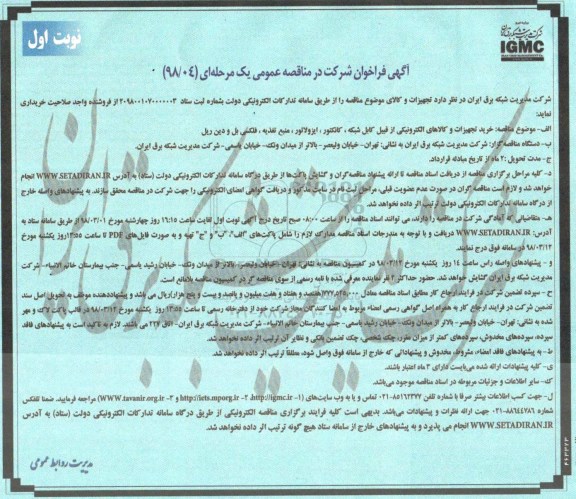 نوبت اول
شرکت مدیریت شبکه برق ایران
IGMC
آگهی فراخوان شرکت در مناقصه عمومی یک مرحله‌ای (۹۸/۰۴)
شرکت مدیریت شبکه برق ایران در نظر دارد تجهیزات و کالای موضوع مناقصه را از طریق سامانه تدارکات الکترونیکی دولت بشماره ثبت ستاد ۲۰۹۸۰۰۱۰۷۰۰۰۰۰۰۳ از فروشنده واجد صلاحیت خریداری
نماید:
الف- موضوع مناقصه: خرید تجهیزات و کالاهای الکترونیکی از قبیل کابل شبکه ، کانکتور ، ایزولاتور ، منبع تغذیه ، فلکسی پل و دین ریل
ب- دستگاه مناقصه گزار: شرکت مدیریت شبکه برق ایران به نشانی: تهران- خیابان ولیعصر- بالاتر از میدان ونک- خیابان یاسمی - شرکت مدیریت شبکه برق ایران.
ج- مدت تحویل: ۲ ماه از تاریخ مبادله قرارداد.
د- کلیه مراحل برگزاری مناقصه از دریافت اسناد مناقصه تا ارائه پیشنهاد مناقصه گران و گشایش پاکت‌ها از طریق درگاه سامانه تدارکات الکترونیکی دولت (ستاد) به آدرس WWW.SETADIRAN.IR انجام
خواهد شد و لازم است مناقصه گران در صورت عدم عضویت قبلی، مراحل ثبت نام در سایت مذکور و دریافت گواهی امضای الکترونیکی را جهت شرکت در مناقصه محقق سازند. به پیشنهادهای واصله خارج
از درگاه سامانه تدارکات الکترونیکی دولت ترتیب اثر داده نخواهد شد.
هـ- متقاضیانی که آمادگی شرکت در مناقصه را دارند، می توانند اسناد مناقصه را از ساعت ۰۸:۰۰ صبح تاریخ درج آگهی نوبت اول لغایت ساعت ۱۶:۱۵ روز چهارشنبه مورخ ۹۸/۰۳/۰۱ از طریق سامانه ستاد به
آدرس: WWW.SETADIRAN.IR دریافت و با توجه به مندرجات اسناد مناقصه مدارک لازم را شامل پاکت‌های "الف"، "ب" و "ج" تهیه و به صورت فایل‌های PDF تا ساعت ۱۳:۵۵ روز یکشنبه مورخ
۹۸/۰۳/۱۲ در سامانه فوق درج نمایند.
و - پیشنهادهای واصله راس ساعت ۱۴ روز یکشنبه مورخ ۹۸/۰۳/۱۲ در کمیسیون مناقصه به نشانی: تهران -خیابان ولیعصر- بالاتر از میدان ونک- خیابان رشید یاسمی- جنب بیمارستان خاتم الانبیاء- شرکت
مدیریت شبکه برق ایران گشایش خواهد شد. حضور حداکثر ۲ نفر نماینده معرفی شده با نامه رسمی از سوی مناقصه گر در کمیسیون مناقصه بلامانع است.
ح - سپرده تضمین شرکت در فرایند ارجاع کار مطابق اسناد مناقصه معادل ریال می باشد و پیشنهاددهنده موظف به تحویل اصل سند
تضمین شرکت در فرایند ارجاع کار به همراه اصل گواهی رسمی امضاء مربوط به امضا کنندگان مجاز شرکت خود از دفترخانه رسمی تا ساعت ۱۳:۵۵ روز یکشنبه مورخ ۹۸/۰۳/۱۲ در قالب پاکت لاک و مهر
شده به نشانی: تهران- خیابان ولیعصر- بالاتر از میدان ونک- خیابان رشید یاسمی- جنب بیمارستان خاتم الانبیاء- شرکت مدیریت شبکه برق ایران- اتاق ۲۲۷ می باشند. لازم به تاکید است به پیشنهادهای فاقد
سپرده، سپرده‌های مخدوش، سپرده‌های کمتر از میزان مقرر، چک شخصی، چک تضمین بانکی و نظایر آن ترتیب اثر داده نخواهد شد.
ط- به پیشنهادهای فاقد امضاء، مشروط، مخدوش و پیشنهاداتی که خارج از سامانه فوق واصل شود، مطلقاً ترتیب اثر داده نخواهد شد.
ی- کلیه پیشنهادات ارائه شده می‌بایست دارای ۳ ماه اعتبار باشند.
ک- سایر اطلاعات و جزئیات مربوطه در اسناد مناقصه موجود می‌باشد.
ل- جهت کسب اطلاعات بیشتر صرفا با شماره تلفن ۰۲۱-۸۵۱۶۲۳۷۲ تماس و یا به وب سایت‌های (۱- http://igmc.ir، ۲- http://iets.mporg.ir و ۳- WWW.tavanir.org.ir) مراجعه فرمایید. ضمنا تلفکس
شماره ۰۲۱-۸۸۶۴۴۷۸۱ جهت ارائه نظرات و پیشنهادات می‌باشد. بدیهی است کلیه فرایند برگزاری مناقصه الکترونیکی از طریق درگاه سامانه تدارکات الکترونیکی دولت (ستاد) به آدرس
WWW.SETADIRAN.IR انجام می پذیرد و به پیشنهادهای خارج از سامانه ستاد هیچ گونه ترتیب اثر داده نخواهد شد.
مدیریت روابط عمومی